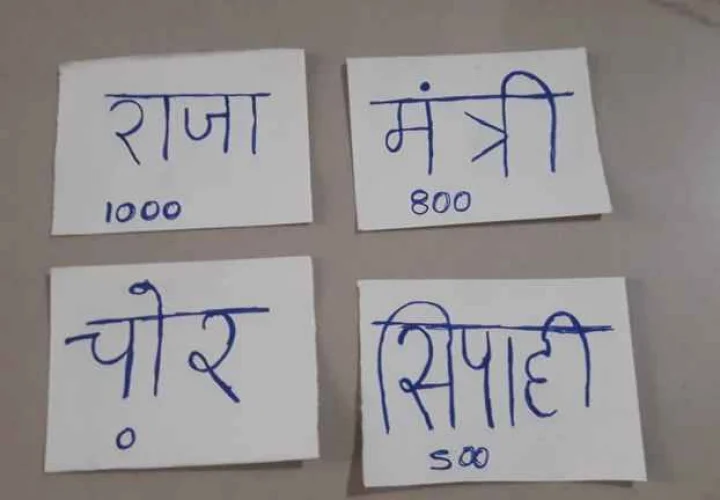 राजा
1000
मंत्री
800
चोर
0
सिपाही
500